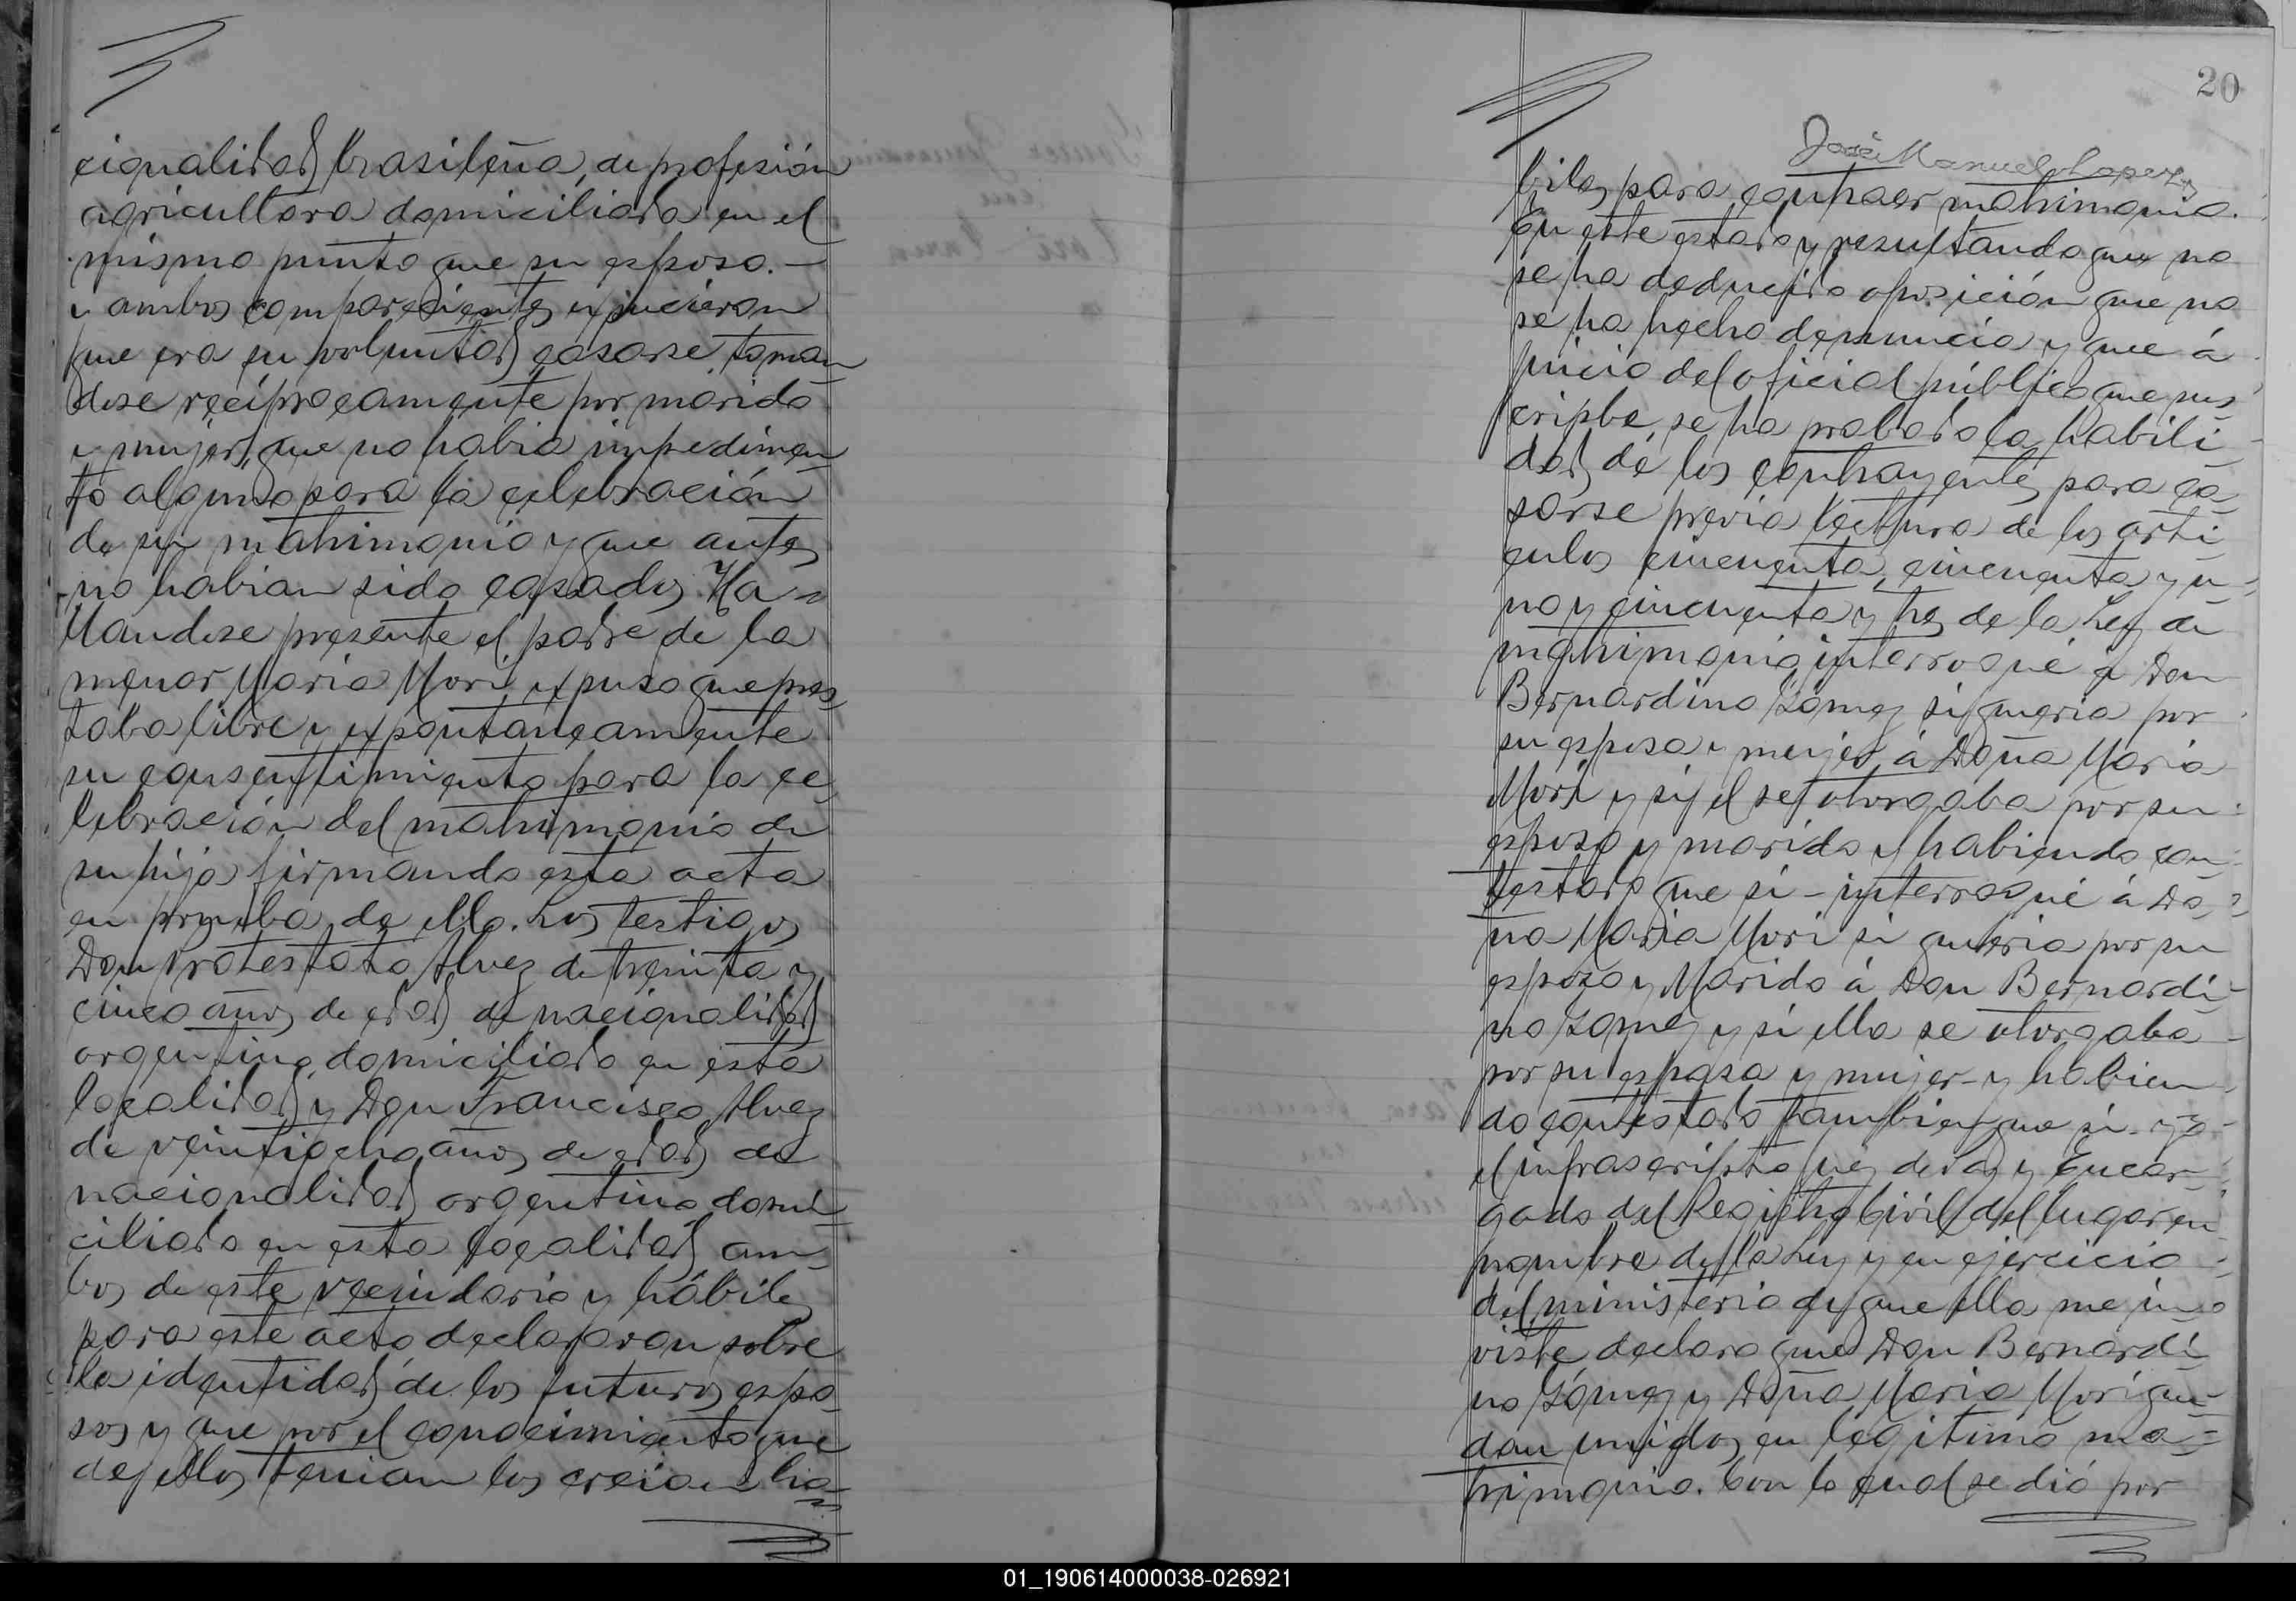 cionalidad brasileña, de profesión
agricultora domiciliada en el
mismo punto que su esposo.—
y ambos comparecientes expusieron
que era su voluntad casarse toman
dose recíprocamente por marido
y mujer, que no habia impedimen
to alguno para la celebración
de su matrimonio y que antes
no habian sido casados. Ha=
llandose presente el padre de la
menor Maria Mori, expuso que pres
taba libre y expontaneamente
su consentimiento para la ce
lebración del matrimonio de
su hija firmando esta acta
en prueba de ello. Los testigos
Don Protestato Alvez de treinta y
cinco años de edad de nacionalidad
argentina domiciliado en esta
localidad y Don Francisco Alvez
de veintiocho años de edad de
nacionalidad argentina domi
ciliado en esta localidad am
bos de este vecindario y hábiles
para este acto declararon sobre
la identidad de los futuros espo
sos y que por el conocimiento que
de ellos tenian los creian ha=
20
José Manuel Lopez
biles para contraer matrimonio.
En este estado y resultando que no
se ha deducido oposición que no
se ha hecho denuncia y que á
juicio del oficial público que sus
cripbe, se ha probado la habili
dad de los contrayentes para ca
sarse previa lectura de los arti
culos cincuenta, cincuenta y u=
no y cincuenta y tres de la Ley de
matrimonio, interrogué á Don
Bernardino Gomez si queria por
su esposa y mujer á Doña Maria
Mori y si él se otorgaba por su
esposo y marido y habiendo con
testado que si - interrogué á Do
ña Maria Mori si queria por su
esposo y Marido á Don Bernardi
no Gomez y si ella se otorgaba
por su esposa y mujer - y habien
do contestado tambien que si - yo
el infrascripto Juez de Paz y Encar
gado del Registro Civil del lugar en
nombre de la Ley y en ejercicio
del ministerio de que ella me in=
viste declaro que Don Bernardi
no Gómez y Doña Maria Mori que
dan unidos en legitimo ma=
trimonio. Con lo cual se dió por
01_190614000038-026921